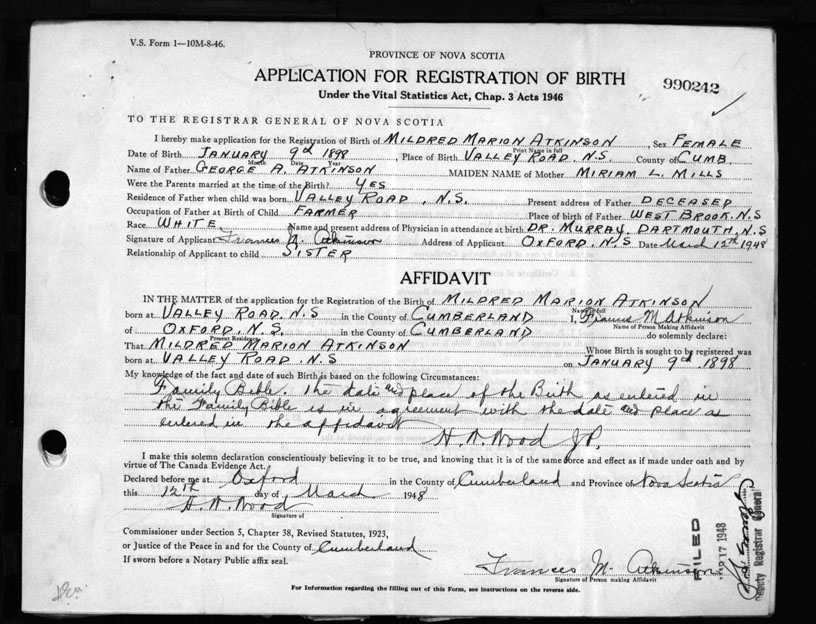 V.S. Form 1—10M-8-46.
PROVINCE OF NOVA SCOTIA
APPLICATION FOR REGISTRATION OF BIRTH
990242
Under the Vital Statistics Act, Chap. 3 Acts 1946
TO THE REGISTRAR GENERAL OF NOVA SCOTIA
I hereby make application for the Registration of Birth of MILDRED MARION ATKINSON, Sex FEMALE
Print Name in full
Date of Birth JANUARY 9th 1898, Place of Birth VALLEY ROAD, N.S. County of CUMB.
Month Date Year
Name of Father GEORGE A. ATKINSON MAIDEN NAME of Mother MIRIAM L. MILLS
Were the Parents married at the time of the Birth? YES
Residence of Father when child was born VALLEY ROAD, N.S. Present address of Father DECEASED
Occupation of Father at Birth of Child FARMER Place of birth of Father WEST BROOK, N.S
Race WHITE Name and present address of Physician in attendance at birth DR. MURRAY, DARTMOUTH, N.S
Signature of Applicant Frances M. Atkinson Address of Applicant OXFORD, N.S Date March 12th 1948
Relationship of Applicant to child SISTER
AFFIDAVIT
IN THE MATTER of the application for the Registration of the Birth of MILDRED MARION ATKINSON
Name in full
born at VALLEY ROAD. N.S in the County of CUMBERLAND I, Frances M Atkinson
Name of Person Making Affidavit
of OXFORD, N.S. in the County of CUMBERLAND do solemnly declare:
Present Residence
That MILDRED MARION ATKINSON Whose Birth is sought to be registered was
born at VALLEY ROAD. N.S on JANUARY 9th 1898
My knowledge of the fact and date of such Birth is based on the following Circumstances:
Family Bible. The date and place of the Birth as entered in
the Family Bible is in agreement with the date and place as
entered in the affidavit
H. N. Wood J.P.
I make this solemn declaration conscientiously believing it to be true, and knowing that it is of the same force and effect as if made under oath and by
virtue of The Canada Evidence Act.
Declared before me at Oxford in the County of Cumberland and Province of Nova Scotia
this 12th day of March 1948
H. N. Wood
Signature of
Commissioner under Section 5, Chapter 38, Revised Statutes, 1923,
or Justice of the Peace in and for the County of Cumberland
If sworn before a Notary Public affix seal.
Frances M. Atkinson
Signature of Person making Affidavit
For Information regarding the filling out of this Form, see Instructions on the reverse side.
FILED
MAR 17 1948
Deputy Registrar General